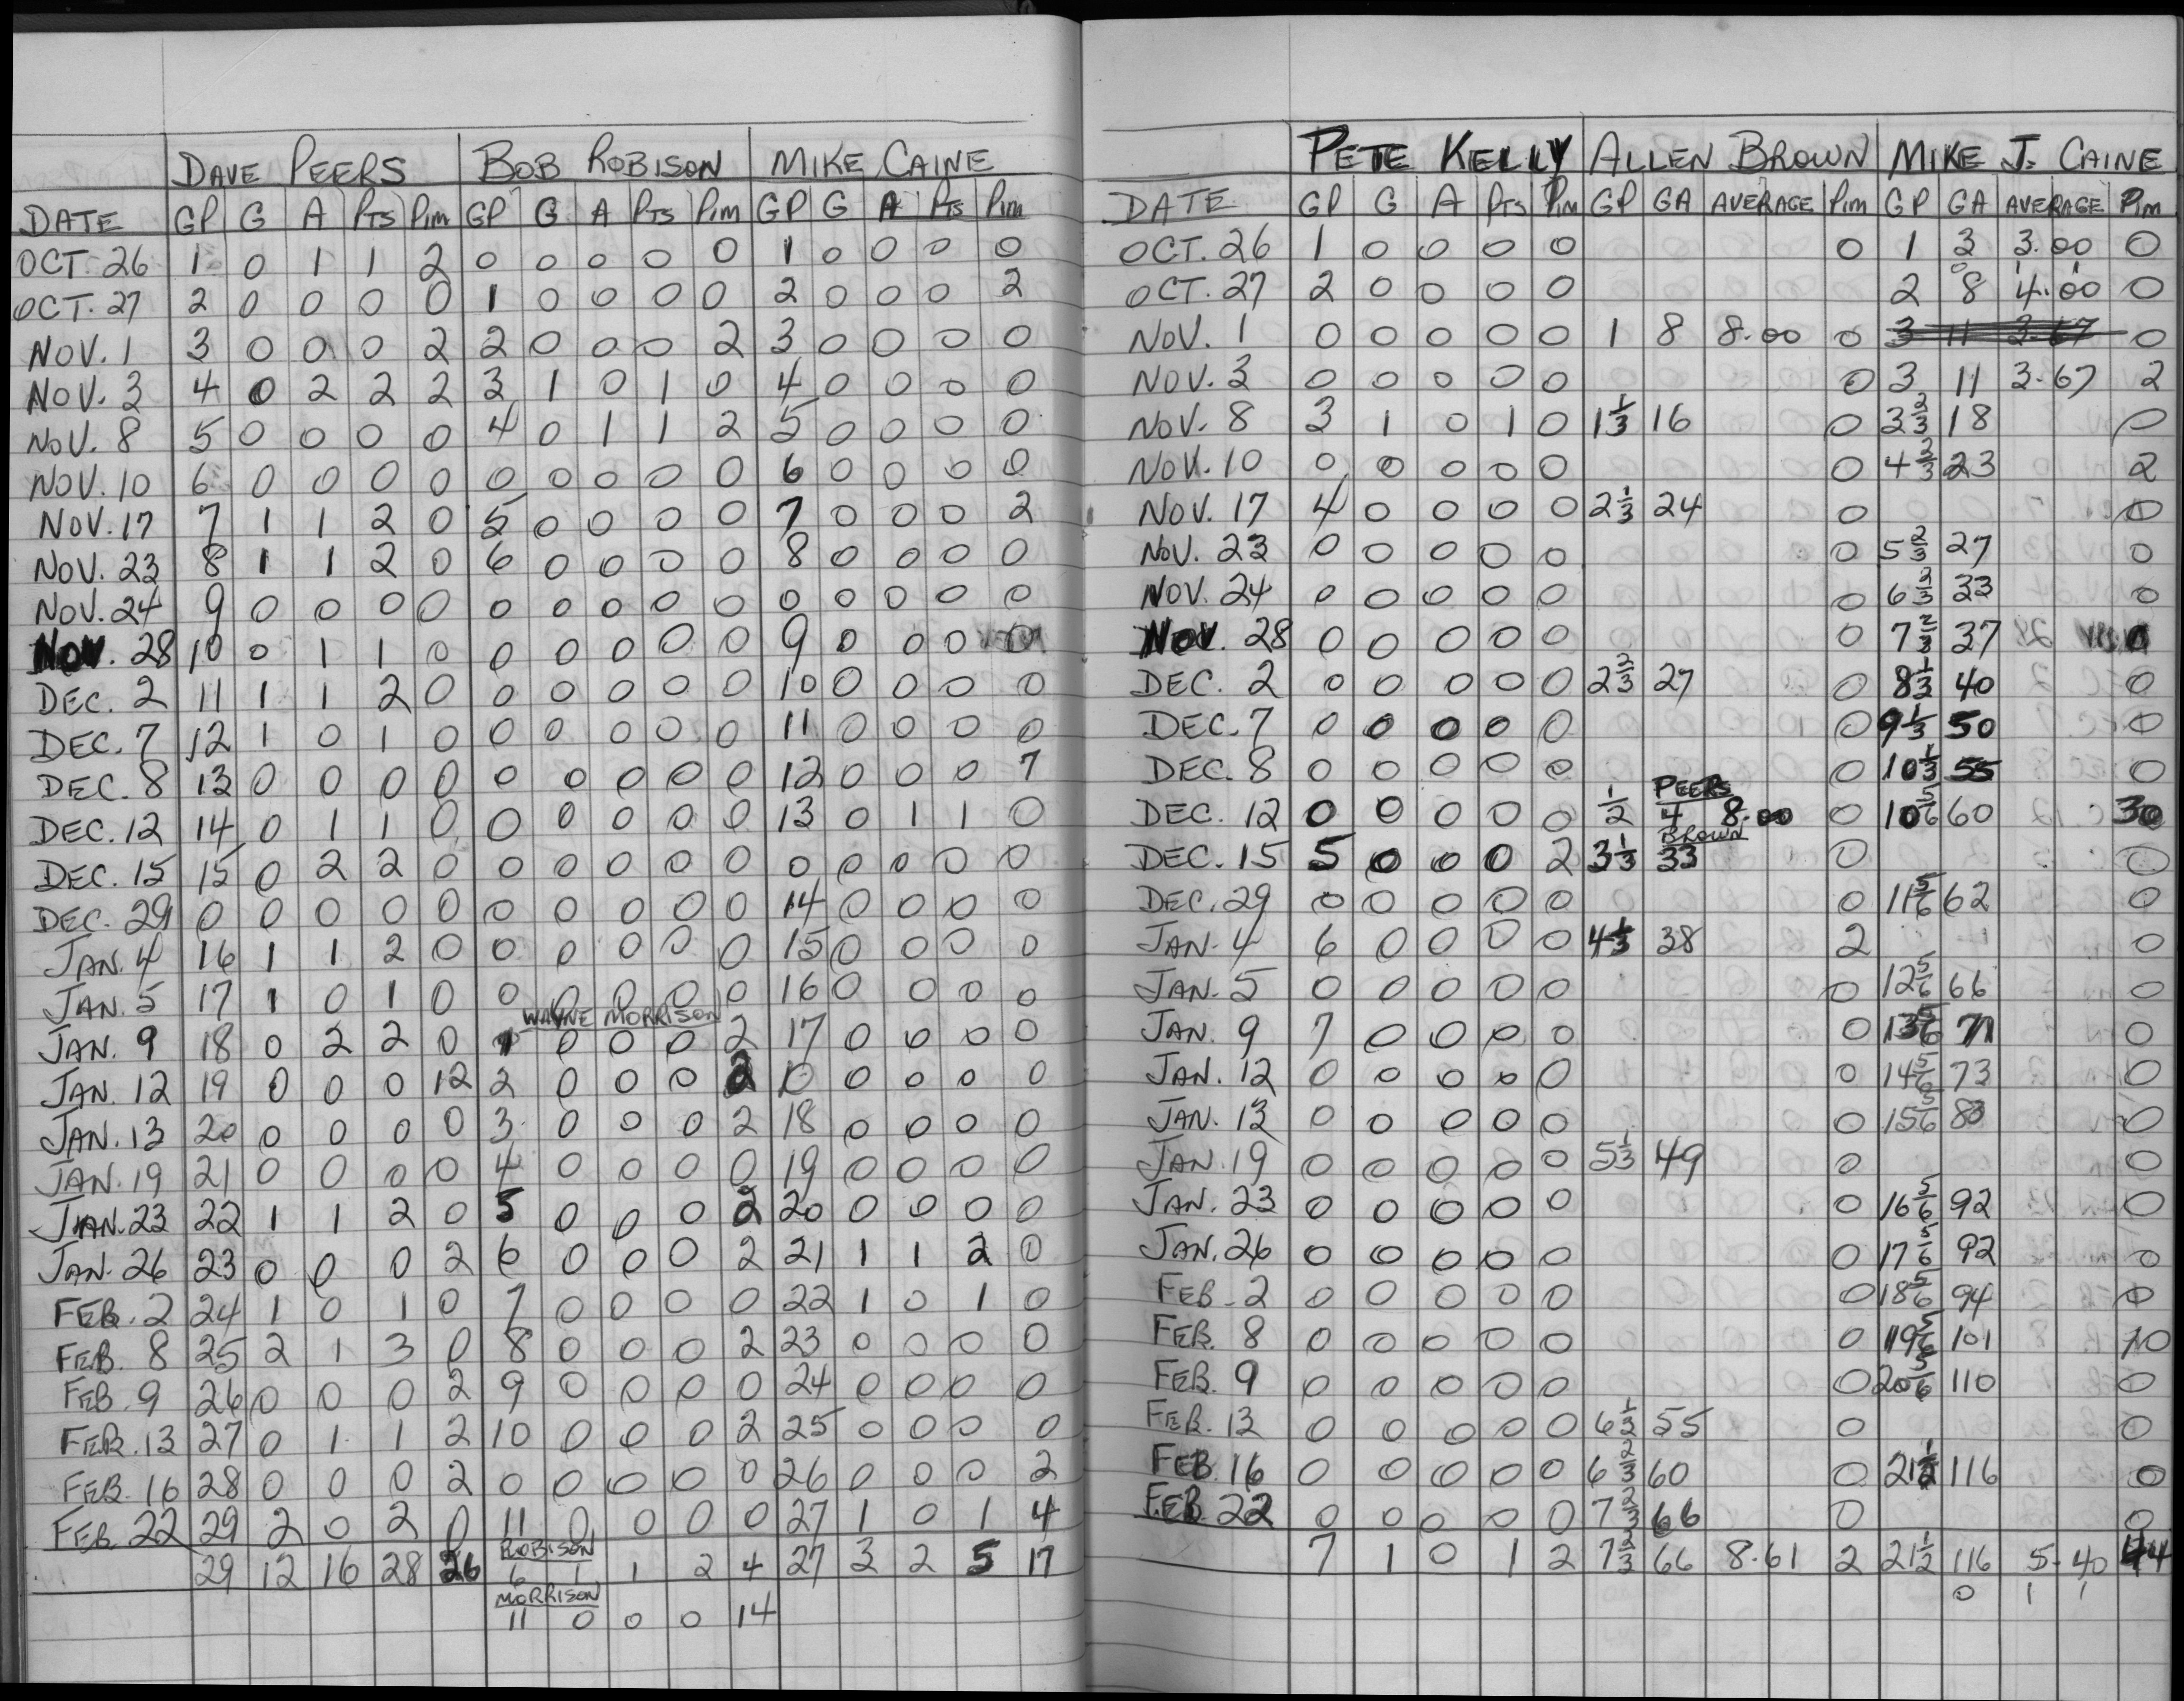 DAVE PEERS BOB ROBISON MIKE CAINE
DATE GP G A PTS PIM GP G A PTS PIM GP G A PTS PIM
OCT. 26 1 0 1 1 2 0 0 0 0 0 1 0 0 0 0
OCT. 27 2 0 0 0 0 1 0 0 0 0 2 0 0 0 2
NOV. 1 3 0 0 0 2 2 0 0 0 2 3 0 0 0 0
NOV. 3 4 0 2 2 2 3 1 0 1 0 4 0 0 0 0
NOV. 8 5 0 0 0 0 4 0 1 1 2 5 0 0 0 0
NOV. 10 6 0 0 0 0 0 0 0 0 0 6 0 0 0 0
NOV. 17 7 1 1 2 0 5 0 0 0 0 7 0 0 0 2
NOV. 23 8 1 1 2 0 6 0 0 0 0 8 0 0 0 0
NOV. 24 9 0 0 0 0 0 0 0 0 0 0 0 0 0 0
NOV. 28 10 0 1 1 0 0 0 0 0 0 9 0 0 0 0
DEC. 2 11 1 1 2 0 0 0 0 0 0 10 0 0 0 0
DEC. 7 12 1 0 1 0 0 0 0 0 0 11 0 0 0 0
DEC. 8 13 0 0 0 0 0 0 0 0 0 12 0 0 0 7
DEC. 12 14 0 1 1 0 0 0 0 0 0 13 0 1 1 0
DEC. 15 15 0 2 2 0 0 0 0 0 0 0 0 0 0 0
DEC. 29 0 0 0 0 0 0 0 0 0 0 14 0 0 0 0
JAN. 4 16 1 1 2 0 0 0 0 0 0 15 0 0 0 0
JAN. 5 17 1 0 1 0 0 0 0 0 0 16 0 0 0 0
WAYNE MORRISON
JAN. 9 18 0 2 2 0 1 0 0 0 2 17 0 0 0 0
JAN. 12 19 0 0 0 12 2 0 0 0 2 0 0 0 0 0
JAN. 13 20 0 0 0 0 3 0 0 0 2 18 0 0 0 0
JAN. 19 21 0 0 0 0 4 0 0 0 0 19 0 0 0 0
JAN. 23 22 1 1 2 0 5 0 0 0 2 20 0 0 0 0
JAN. 26 23 0 0 0 2 6 0 0 0 2 21 1 1 2 0
FEB. 2 24 1 0 1 0 7 0 0 0 0 22 1 0 1 0
FEB. 8 25 2 1 3 0 8 0 0 0 2 23 0 0 0 0
FEB. 9 26 0 0 0 2 9 0 0 0 0 24 0 0 0 0
FEB. 13 27 0 1 1 2 10 0 0 0 2 25 0 0 0 0
FEB. 16 28 0 0 0 2 0 0 0 0 0 26 0 0 0 2
FEB. 22 29 2 0 2 0 11 0 0 0 0 27 1 0 1 4
ROBISON
29 12 16 28 26 6 1 1 2 4 27 3 2 5 17
MORRISON
11 0 0 0 14
PETE KELLY ALLEN BROWN MIKE J. CAINE
DATE GP G A PTS PIM GP GA AVERAGE PIM GP GA AVERAGE PIM
OCT. 26 1 0 0 0 0 0 1 3 3.00 0
0 1 1
OCT. 27 2 0 0 0 0 2 8 4.00 0
NOV. 1 0 0 0 0 0 1 8 8.00 0 3 11 3.67 0
NOV. 3 0 0 0 0 0 0 3 11 3.67 2
NOV. 8 3 1 0 1 0 1 1/3 16 0 3 2/3 18 0
NOV. 10 0 0 0 0 0 0 4 2/3 23 2
NOV. 17 4 0 0 0 0 2 1/3 24 0 0
NOV. 23 0 0 0 0 0 0 5 2/3 27 0
NOV. 24 0 0 0 0 0 0 6 2/3 33 0
NOV. 28 0 0 0 0 0 0 7 2/3 37 0
DEC. 2 0 0 0 0 0 2 2/3 27 0 8 1/3 40 0
DEC. 7 0 0 0 0 0 0 9 1/3 50 0
DEC. 8 0 0 0 0 0 0 10 1/3 55 0
PEERS
DEC. 12 0 0 0 0 0 1/2 4 8.00 0 10 5/6 60 30
BROWN
DEC. 15 5 0 0 0 2 3 1/3 33 0 0
DEC. 29 0 0 0 0 0 0 11 5/6 62 0
JAN. 4 6 0 0 0 0 4 1/3 38 2 0
JAN. 5 0 0 0 0 0 0 12 5/6 66 0
JAN. 9 7 0 0 0 0 0 13 5/6 71 0
JAN. 12 0 0 0 0 0 0 14 5/6 73 0
JAN. 13 0 0 0 0 0 0 15 5/6 80 0
JAN. 19 0 0 0 0 0 5 1/3 49 0 0
JAN. 23 0 0 0 0 0 0 16 5/6 92 0
JAN. 26 0 0 0 0 0 0 17 5/6 92 0
FEB. 2 0 0 0 0 0 0 18 5/6 94 0
FEB. 8 0 0 0 0 0 0 19 5/6 101 10
FEB. 9 0 0 0 0 0 0 20 5/6 110 0
FEB. 13 0 0 0 0 0 6 1/3 55 0 0
FEB. 16 0 0 0 0 0 6 2/3 60 0 21 1/2 116 0
FEB. 22 0 0 0 0 0 7 2/3 66 0 0
7 1 0 1 2 7 2/3 66 8.61 2 21 1/2 116 5.40 44
0 1 1